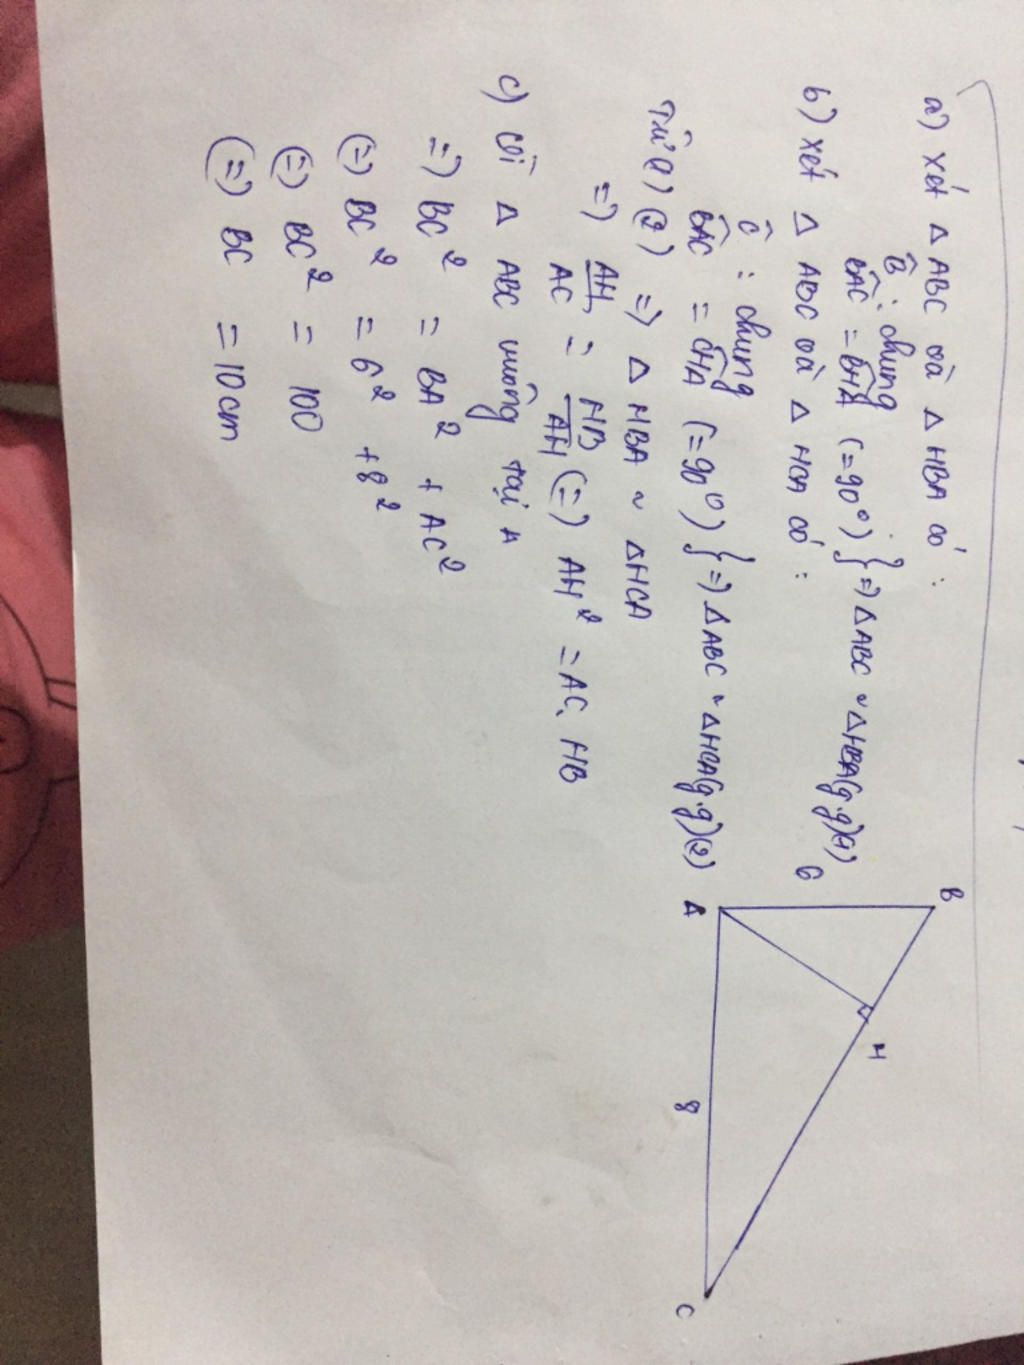 a) Xét Δ ABC và Δ HBA có:
B̂ : chung
BÂC = BĤA (=90°) } => ΔABC ~ ΔHBA(g.g)(1)
b) Xét Δ ABC và Δ HCA có:
Ĉ : chung
BÂC = CĤA (=90°) } => ΔABC ~ ΔHCA(g.g)(2)
Từ (1) (2) => Δ HBA ~ ΔHCA
=> AH/AC = HB/AH (=) AH² = AC. HB
c) Vì Δ ABC vuông tại A
=) BC² = BA² + AC²
(=) BC² = 6² + 8²
(=) BC² = 100
(=) BC = 10cm
B
6
H
A
8
C